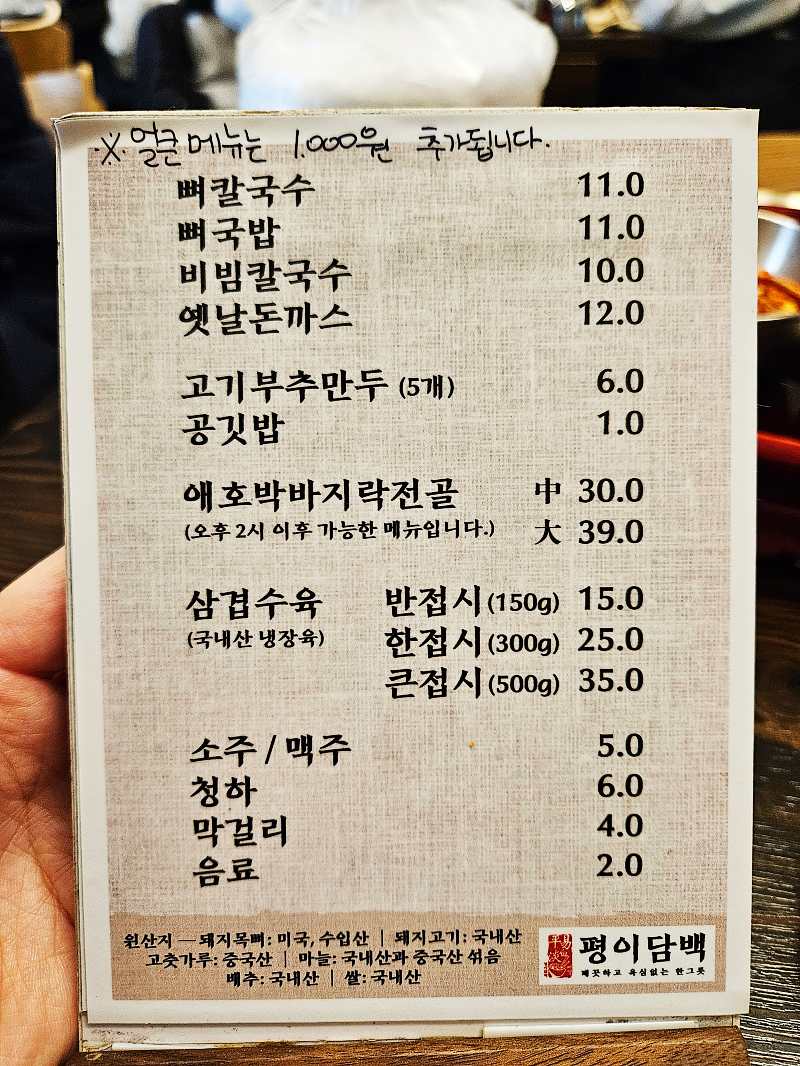 ※ 얼큰 메뉴는 1,000원 추가됩니다.
뼈칼국수 11.0
뼈국밥 11.0
비빔칼국수 10.0
옛날돈까스 12.0
고기부추만두 (5개) 6.0
공깃밥 1.0
애호박바지락전골 中 30.0
(오후 2시 이후 가능한 메뉴입니다.) 大 39.0
삼겹수육 반접시(150g) 15.0
(국내산 냉장육) 한접시(300g) 25.0
큰접시(500g) 35.0
소주 / 맥주 5.0
청하 6.0
막걸리 4.0
음료 2.0
원산지 — 돼지목뼈: 미국, 수입산 | 돼지고기: 국내산
고춧가루: 중국산 | 마늘: 국내산과 중국산 섞음
배추: 국내산 | 쌀: 국내산
平易淡
평이담백
깨끗하고 욕심없는 한그릇